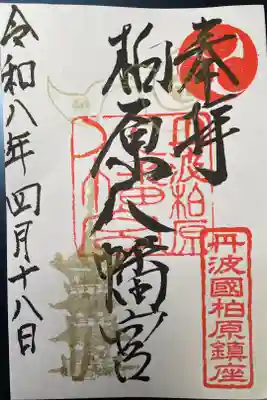 奉拝
丹波柏原
八幡宮
柏原八幡宮
丹波國柏原鎮座
令和八年四月十八日